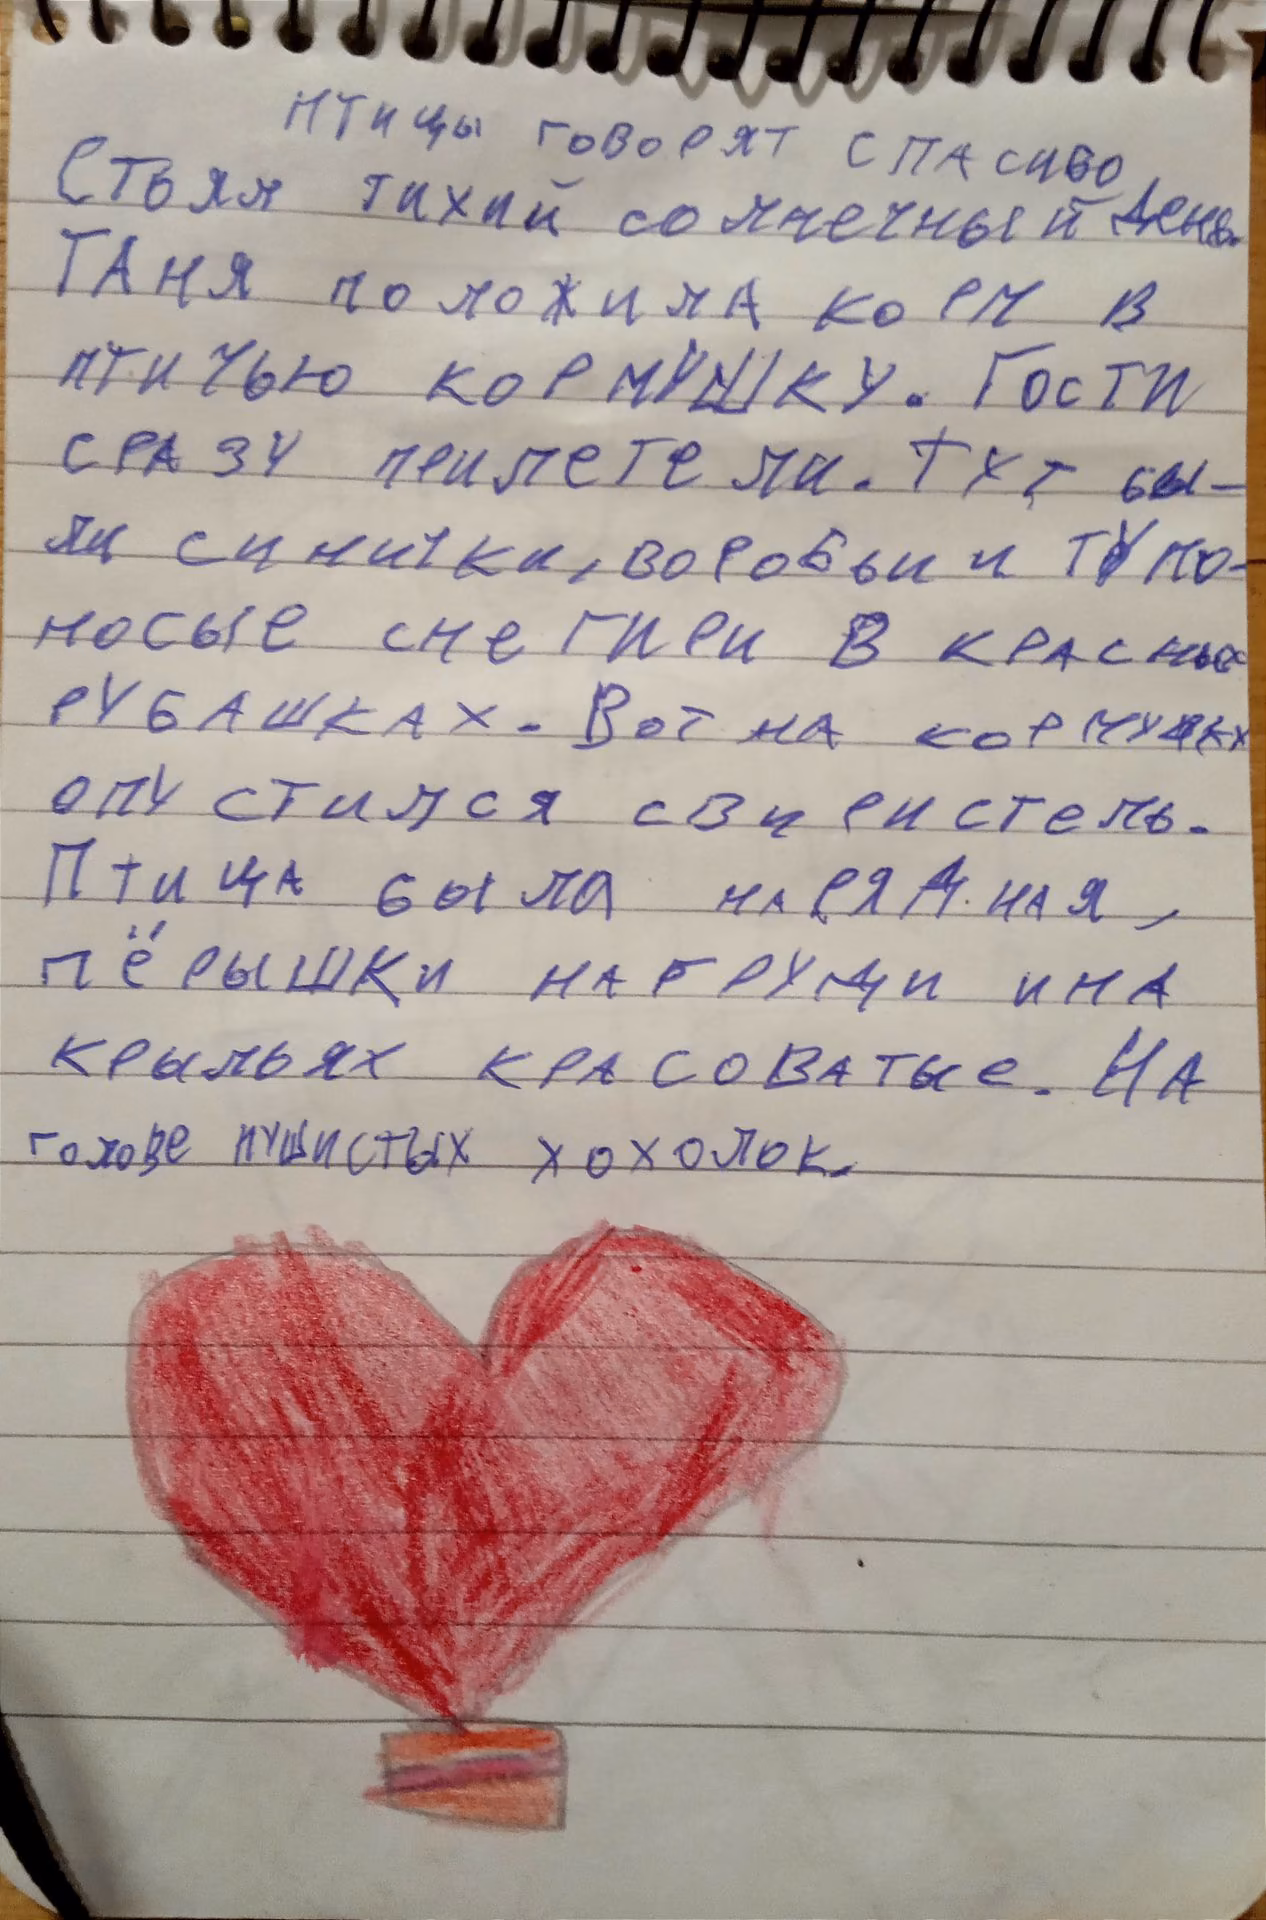 птицы говорят спасибо
Стоял тихий солнечный день.
Таня положила корм в
птичью кормушку. Гости
сразу прилетели. Тут бы-
ли синички, воробьи и тупо-
носые снегири в красных
рубашках. Вот на кормушку
опустился свиристель.
Птица была нарядная,
пёрышки на груди и на
крыльях красоватые. На
голове пушистых хохолок.